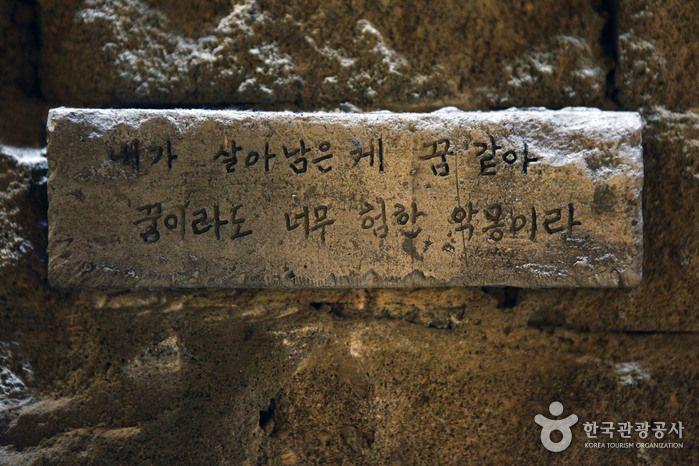 내가 살아남은게 꿈 같아
꿈이라도 너무 험한 악몽이라
한국관광공사
KOREA TOURISM ORGANIZATION